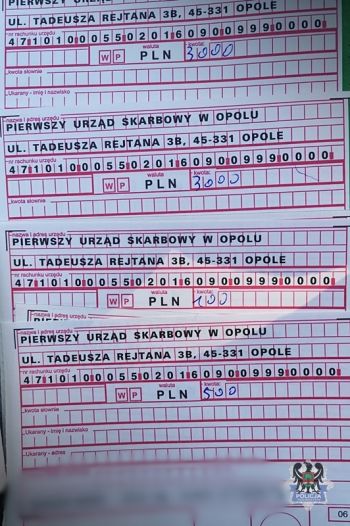 PIERWSZY URZĄD
UL. TADEUSZA REJTANA 3B, 45-331 OPOLE
nr rachunku urzędu
47101000550201609099990000
waluta
kwota:
W P PLN 3000
kwota słownie
Ukarany - imię i nazwisko
nazwa i adres urzędu
PIERWSZY URZĄD SKARBOWY W OPOLU
UL. TADEUSZA REJTANA 3B, 45-331 OPOLE
nr rachunku urzędu
47101000550201609099990000
waluta
kwota:
W P PLN 3000
kwota słownie
nazwa i adres urzędu
PIERWSZY URZĄD SKARBOWY W OPOLU
UL. TADEUSZA REJTANA 3B, 45-331 OPOLE
nr rachunku urzędu
47101000550201609099990000
waluta
kwota:
W P PLN 100
nazwa i adres urzędu
PIERWSZY URZĄD SKARBOWY W OPOLU
UL. TADEUSZA REJTANA 3B, 45-331 OPOLE
nr rachunku urzędu
47101000550201609099990000
waluta
kwota:
W P PLN 500
kwota słownie
Ukarany - imię i nazwisko
Ukarany - adres
POLICJA
06